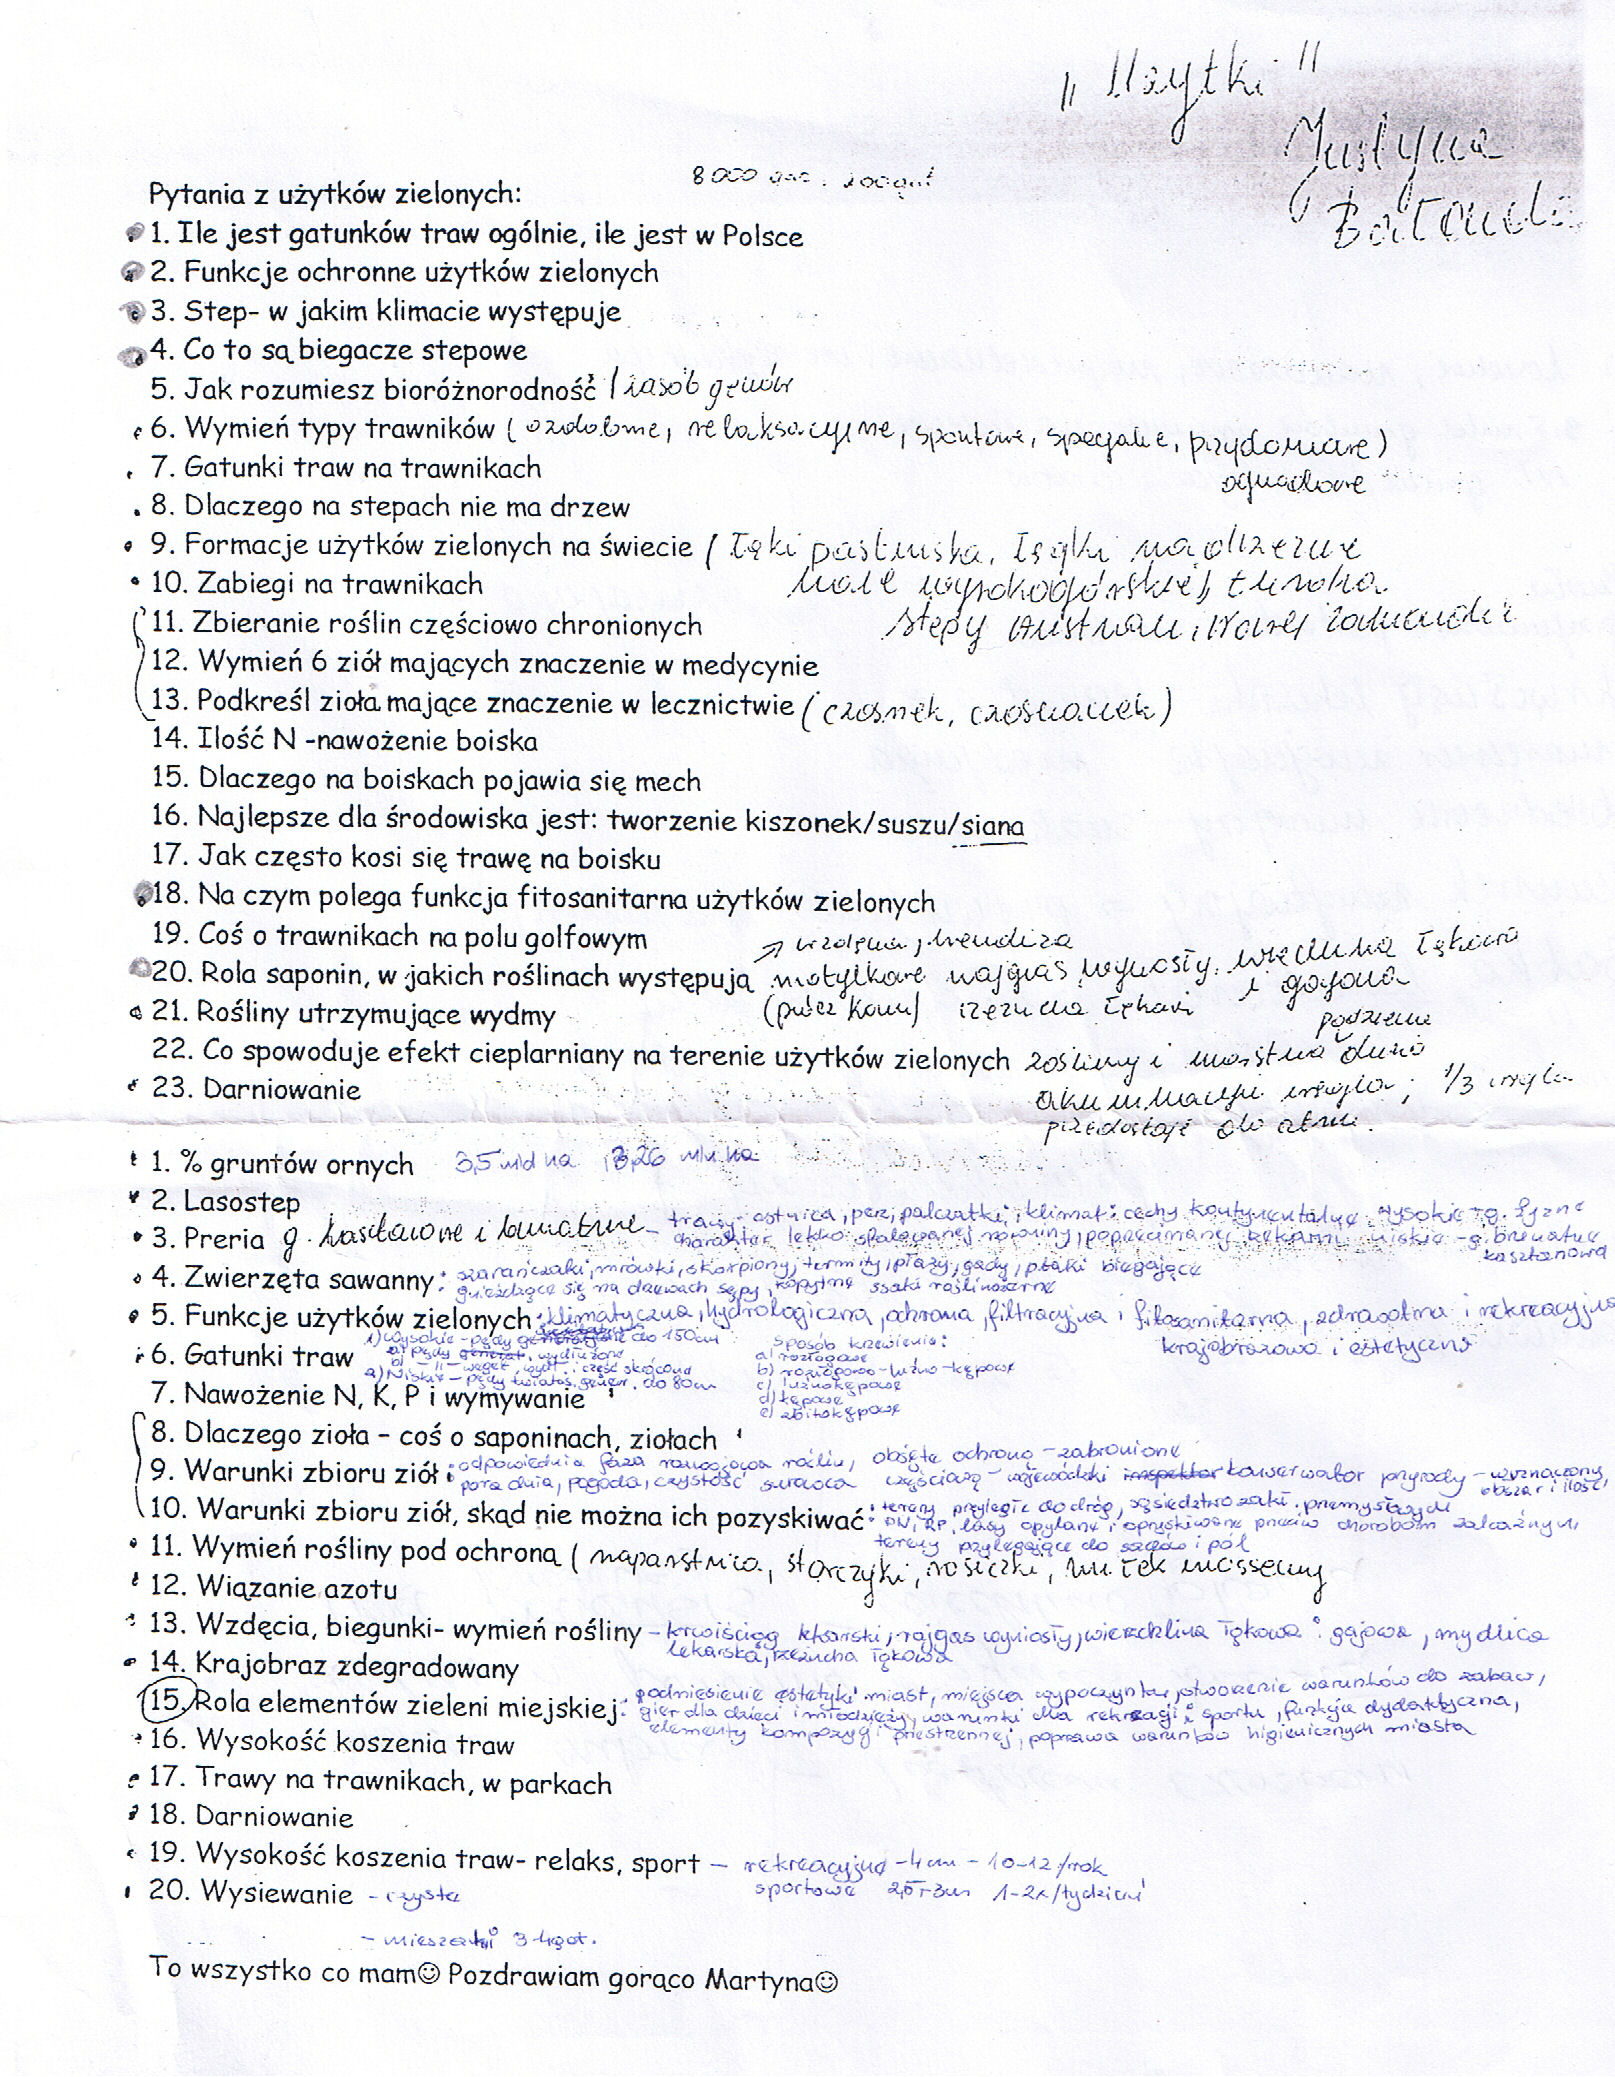 „Użytki"
Justyna
8 000 gat. 200 gat
Pytania z użytków zielonych:
1. Ile jest gatunków traw ogólnie, ile jest w Polsce
2. Funkcje ochronne użytków zielonych
3. Step- w jakim klimacie występuje
4. Co to są biegacze stepowe
5. Jak rozumiesz bioróżnorodność / zasób genów
6. Wymień typy trawników ( ozdobne, relaksacyjne, sportowe, specjalne, przydomowe)
ogrodowe
7. Gatunki traw na trawnikach
8. Dlaczego na stepach nie ma drzew
9. Formacje użytków zielonych na świecie ( Łąki pastwiska, Łąki nadrzeczne
10. Zabiegi na trawnikach hale wysokogórskie, tundra
11. Zbieranie roślin częściowo chronionych stepy Australii, Nowej Zelandii
12. Wymień 6 ziół mających znaczenie w medycynie
13. Podkreśl zioła mające znaczenie w lecznictwie ( czosnek, czosnaczek)
14. Ilość N -nawożenie boiska
15. Dlaczego na boiskach pojawia się mech
16. Najlepsze dla środowiska jest: tworzenie kiszonek/suszu/siana
17. Jak często kosi się trawę na boisku
18. Na czym polega funkcja fitosanitarna użytków zielonych
19. Coś o trawnikach na polu golfowym
20. Rola saponin, w jakich roślinach występują motylkowe rajgras wyniosły, wiechlina łąkowa
i gajowa
rzeżucha łąkowa
21. Rośliny utrzymujące wydmy
22. Co spowoduje efekt cieplarniany na terenie użytków zielonych rośliny i warstwa duża
podziemna
akumulacja węgla; 1/3 węgla
23. Darniowanie
przedostaje do atm.
1. % gruntów ornych 3,5 mld ha 3,26 mln ha
2. Lasostep
3. Preria g. kasztanowe i brunatne - trawy: ostnica, perz, palczatki; klimat: cechy kontynentalne wysokie - g. żyzne
charakter lekko sfalowanej równiny, poprzecinanej rzekami niskie - g. brunatne
kasztanowa
4. Zwierzęta sawanny: szarańczaki, mrówki, skorpiony, termity, płazy, gady, ptaki biegające
gnieżdżące się na drzewach sępy, kopytne ssaki roślinożerne
5. Funkcje użytków zielonych: klimatyczna, hydrologiczna, ochrona, filtracyjna i fitosanitarna, zdrowotna i rekreacyjna
krajobrazowa i estetyczna
1) wysokie - pędy generatywne do 150cm
6. Gatunki traw a) pędy generat. wydłużone
b) - || - weget. wydł. i część skrócona
2) Niskie - pędy kwiatoś. gener. do 80cm
sposób krzewienia:
a) rozłogowe
b) rozłogowo - luźno - kępowe
c) luźnokępowe
d) kępowe
e) zbitokępowe
7. Nawożenie N, K, P i wymywanie
8. Dlaczego zioła - coś o saponinach, ziołach
9. Warunki zbioru ziół: odpowiednia faza rozwojowa roślin, objęte ochroną - zabronione
pora dnia, pogoda, czystość surowca częściową - wojewódzki inspektor konserwator przyrody - wyznaczony
obszar i ilość
10. Warunki zbioru ziół, skąd nie można ich pozyskiwać: tereny przyległe do dróg, sąsiedztwo zakł. przemysłowych
PN, RP, lasy opylane i opryskiwane przeciw chorobom zakaźnym,
tereny przylegające do sadów i pól
11. Wymień rośliny pod ochroną ( naparstnica, storczyki, rosiczki, miłek wiosenny
12. Wiązanie azotu
13. Wzdęcia, biegunki- wymień rośliny - krwiściąg lekarski, rajgras wyniosły, wiechlina łąkowa i gajowa, mydlica
lekarska, rzeżucha łąkowa
14. Krajobraz zdegradowany
15. Rola elementów zieleni miejskiej: podniesienie estetyki miast, miejsca wypoczynku, stworzenie warunków do zabaw,
gier dla dzieci i młodzieży, warunki dla rekreacji i sportu, funkcja dydaktyczna,
elementy kompozycji przestrzennej, poprawa warunków higienicznych miasta
16. Wysokość koszenia traw
17. Trawy na trawnikach, w parkach
18. Darniowanie
19. Wysokość koszenia traw- relaks, sport - rekreacyjne - 4cm - 10-12/rok
sportowe 2,5-3cm 1-2x/tydzień
20. Wysiewanie - czyste
- mieszanki 3-4 gat.
To wszystko co mam☺ Pozdrawiam gorąco Martyna☺